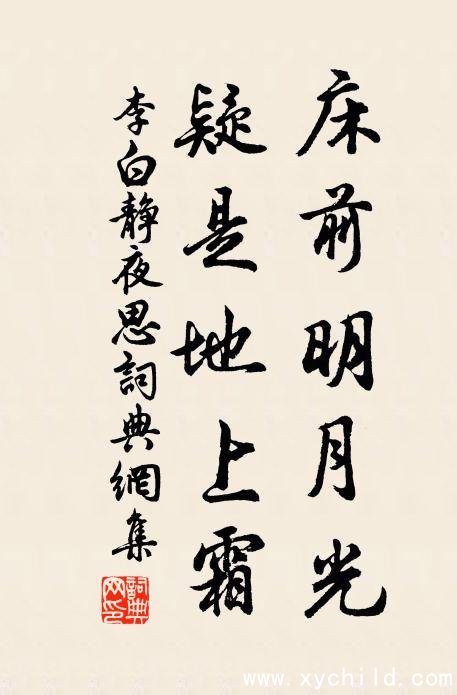 床前明月光
疑是地上霜
李白静夜思詞典網集
詞典
www.xychild.com